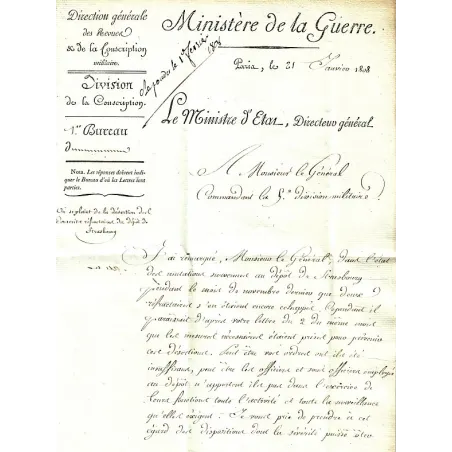 Direction générale
des Revues
& de la Conscription
militaire.
Division
de la Conscription.
1er Bureau
Nota. Les réponses doivent indi-
quer le Bureau d'où les Lettres sont
parties.
On se plaint de la désertion des
Conscrits réfractaires du dépôt de
Strasbourg
Ministère de la Guerre.
Répondu le 1er février
1808
Paris, le 21 Janvier 1808
Le Ministre d'Etat, Directeur général
A Monsieur le Général
Commandant la 5e division militaire
J'ai remarqué, Monsieur le Général, dans l'état
des mutations survenues au dépôt de Strasbourg
pendant le mois de novembre dernier que deux
réfractaires s'en étaient encore échappés. Cependant il
paraissait d'après votre lettre du 2 du même mois
que les mesures nécessaires étaient prises pour prévenir
ces désertions. Peut être vos ordres ont ils été
insuffisans, peut être les officiers et sous officiers employés
au dépôt n'apportent ils pas dans l'exercice de
leurs fonctions toute l'activité et toute la surveillance
qu'elles exigent. Je vous prie de prendre à cet
égard des dispositions dont la sévérité puisse être